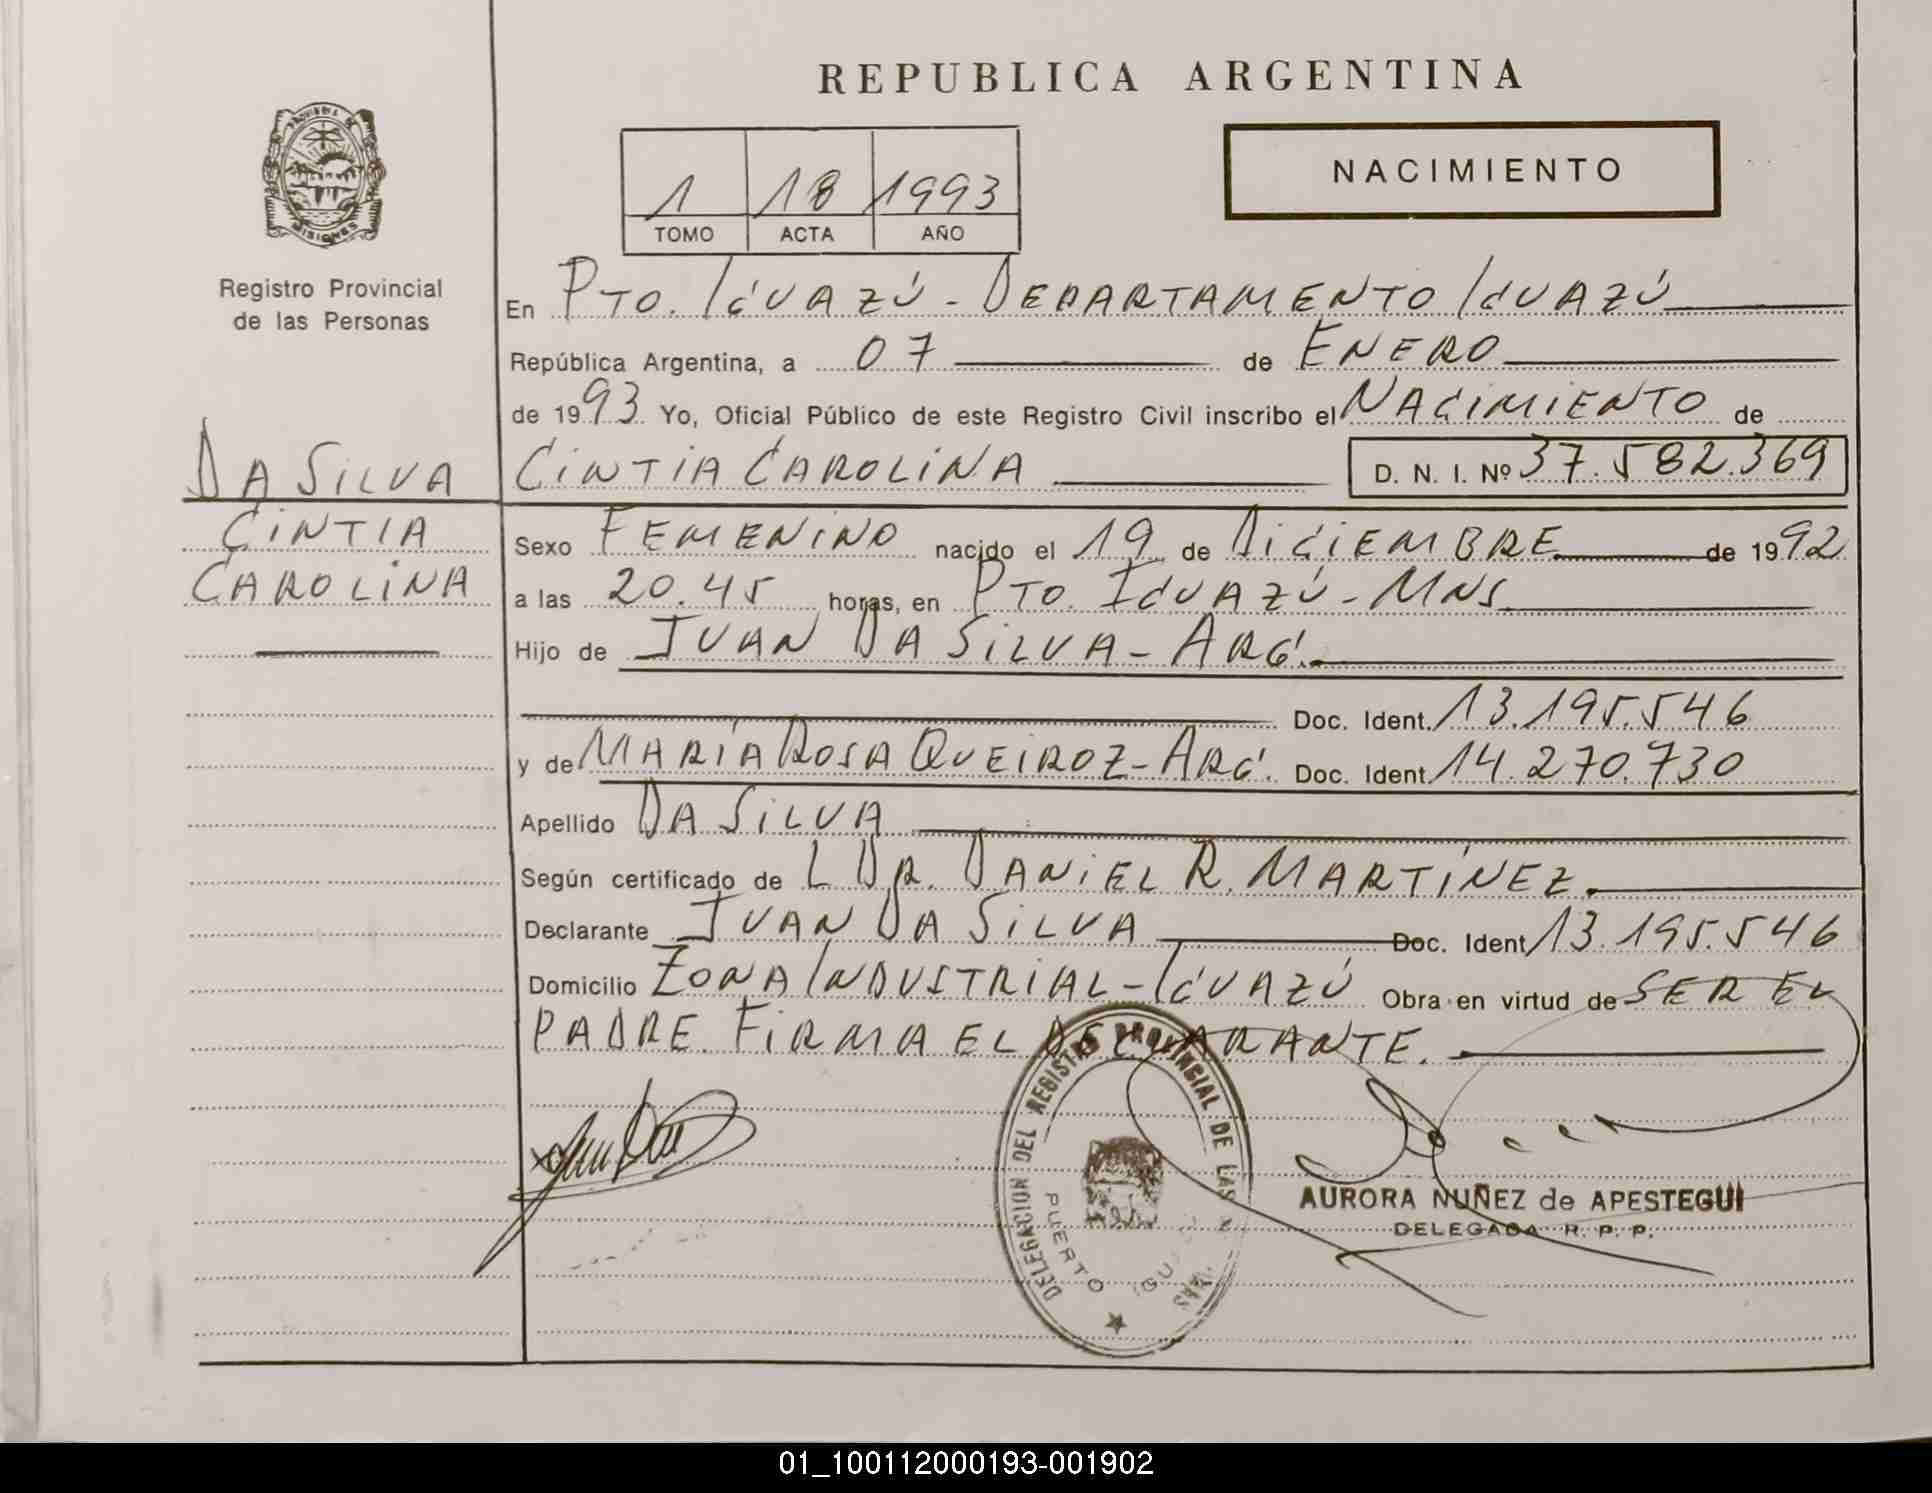 REPUBLICA ARGENTINA
NACIMIENTO
1 18 1993
TOMO ACTA AÑO
PROVINCIA DE
MISIONES
Registro Provincial
de las Personas
En PTO. IGUAZÚ - DEPARTAMENTO IGUAZÚ
República Argentina, a 07 de ENERO
de 1993 Yo, Oficial Público de este Registro Civil inscribo el NACIMIENTO de
DA SILVA CINTIA CAROLINA D. N. I. Nº 37.582.369
CINTIA
CAROLINA
Sexo FEMENINO nacido el 19 de DICIEMBRE de 1992
a las 20.45 horas, en PTO. IGUAZÚ - MNS
Hijo de JUAN DA SILVA - ARG.
Doc. Ident. 13.195.546
y de MARÍA ROSA QUEIROZ - ARG. Doc. Ident 14.270.730
Apellido DA SILVA
Según certificado de L DR. DANIEL R. MARTÍNEZ.
Declarante JUAN DA SILVA Doc. Ident 13.195.546
Domicilio ZONA INDUSTRIAL - IGUAZÚ Obra en virtud de SER EL
PADRE. FIRMA EL DECLARANTE.
DELEGACION DEL REGISTRO PROVINCIAL DE LAS
PUERTO
AURORA NUÑEZ de APESTEGUI
DELEGADA R. P. P.
01_100112000193-001902